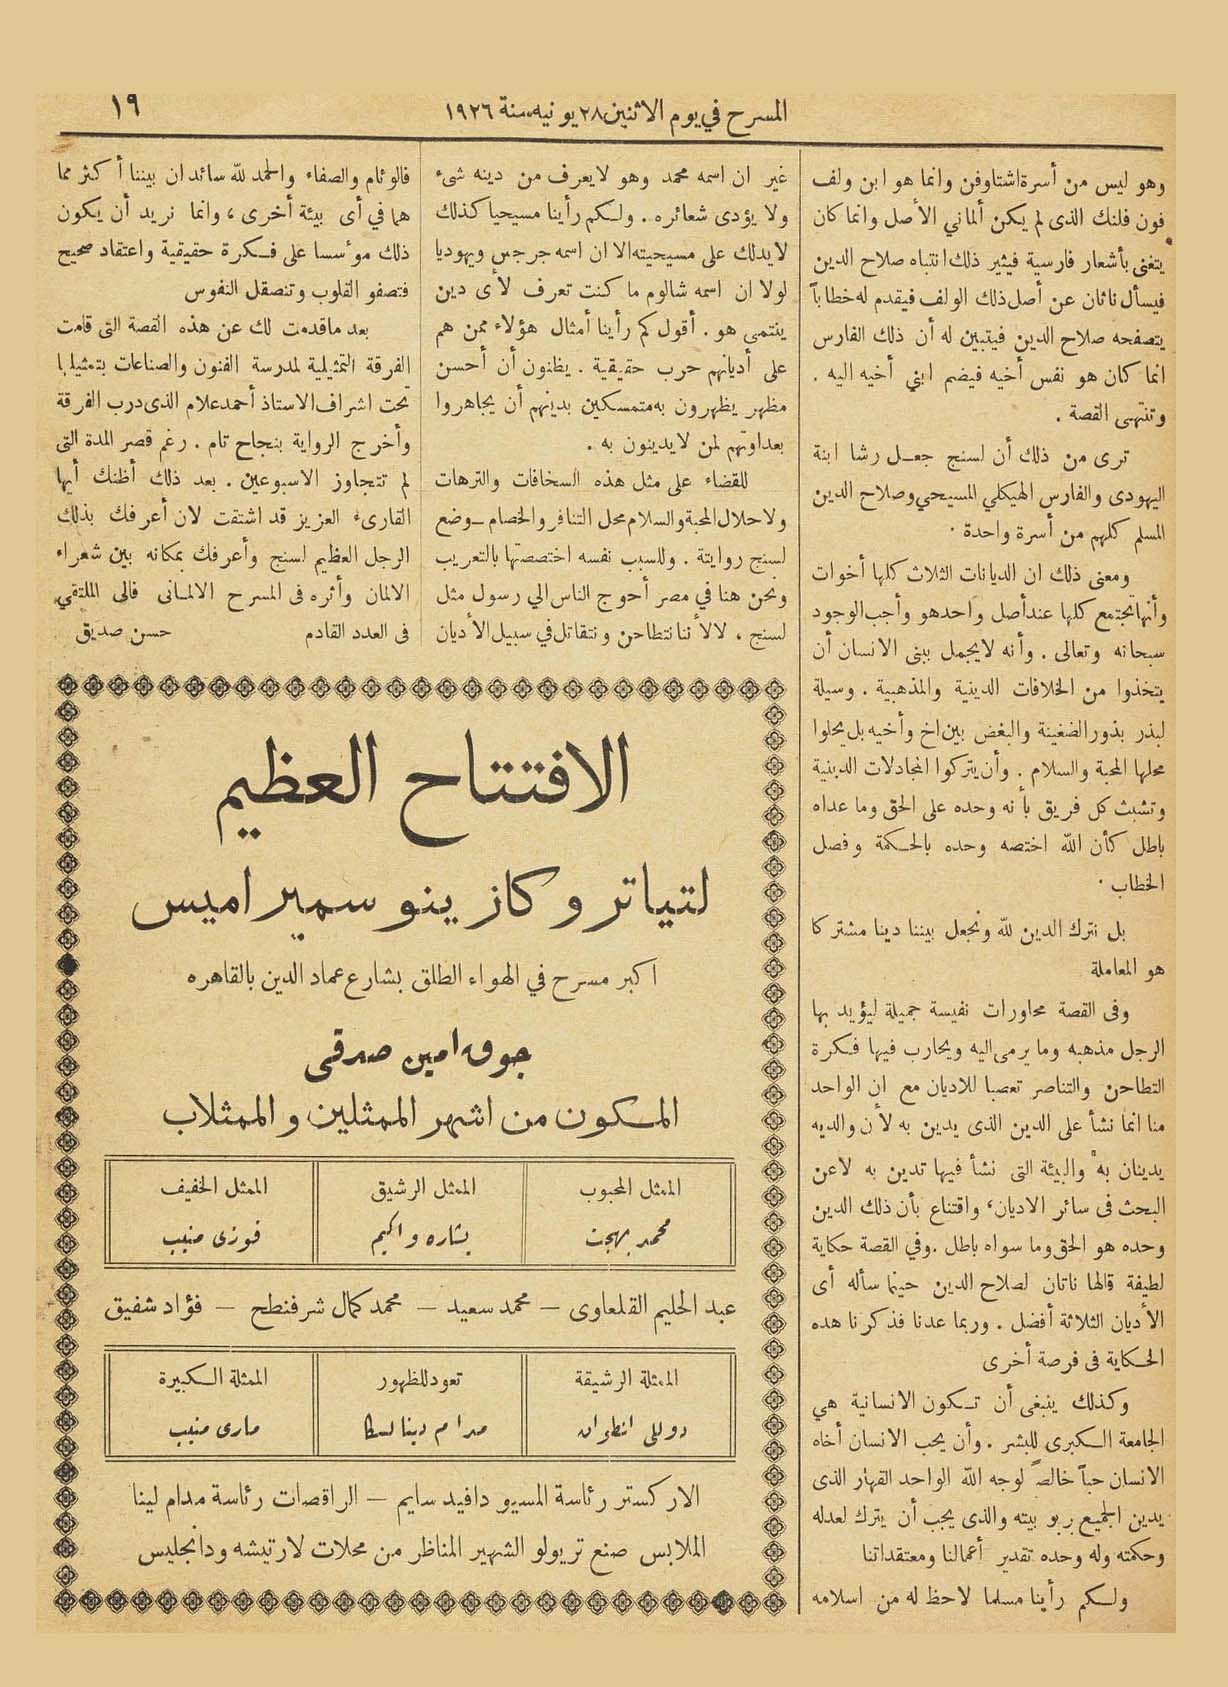 المسرح في يوم الاثنين ٢٨ يونيه سنة ١٩٢٦
١٩
وهو ليس من أسرة اشتاوفن وانما هو ابن ولف
فون فلنك الذى لم يكن ألماني الأصل وانما كان
يتغنى بأشعار فارسية فيثير ذلك انتباه صلاح الدين
فيسأل ناثان عن أصل ذلك الولف فيقدم له خطاباً
يتصفحه صلاح الدين فيتبين له أن ذلك الفارس
انما كان هو نفس أخيه فيضم ابني أخيه اليه .
وتنتهى القصة .
ترى من ذلك أن لسنج جعل رشا ابنة
اليهودى والفارس الهيكلي المسيحي وصلاح الدين
المسلم كلهم من أسرة واحدة .
ومعنى ذلك ان الديانات الثلاث كلها أخوات
وأنها تجتمع كلها عند أصل واحد هو واجب الوجود
سبحانه وتعالى . وأنه لا يجمل ببنى الانسان أن
يتخذوا من الخلافات الدينية والمذهبية . وسيلة
لبذر بذور الضغينة والبغض بين اخ وأخيه بل يحلوا
محلها المحبة والسلام . وأن يتركوا المجادلات الدينية
وتشبث كل فريق بأنه وحده على الحق وما عداه
باطل كأن الله اختصه وحده بالحكمة وفصل
الخطاب .
بل نترك الدين لله ونجعل بيننا دينا مشتركا
هو المعاملة
وفى القصة محاورات نفيسة جميلة ليؤيد بها
الرجل مذهبه وما يرمى اليه ويحارب فيها فكرة
التطاحن والتناصر تعصبا للاديان مع ان الواحد
منا انما نشأ على الدين الذى يدين به لأن والديه
يدينان به والبيئة التى نشأ فيها تدين به لا عن
البحث فى سائر الاديان، واقتناع بأن ذلك الدين
وحده هو الحق وما سواه باطل . وفي القصة حكاية
لطيفة قالها ناتان لصلاح الدين حينما سأله أى
الأديان الثلاثة أفضل . وربما عدنا فذكرنا هذه
الحكاية فى فرصة أخرى
وكذلك ينبغى أن تكون الانسانية هي
الجامعة الكبرى للبشر . وأن يحب الانسان أخاه
الانسان حباً خالصً لوجه الله الواحد القهار الذى
يدين الجميع بربوبيته والذى يجب أن يترك لعدله
وحكمته وله وحده تقدير أعمالنا ومعتقداتنا
ولكم رأينا مسلما لاحظ له من اسلامه
غير ان اسمه محمد وهو لا يعرف من دينه شىء
ولا يؤدى شعائره . ولكم رأينا مسيحيا كذلك
لا يدلك على مسيحيته الا ان اسمه جرجس ويهوديا
لولا ان اسمه شالوم ما كنت تعرف لأى دين
ينتمى هو . أقول كم رأينا أمثال هؤلاء ممن هم
على أديانهم حرب حقيقية . يظنون أن أحسن
مظهر يظهرون به متمسكين بدينهم أن يجاهروا
بعداوتهم لمن لا يدينون به .
للقضاء على مثل هذه السخافات والترهات
ولاحلال المحبة والسلام محل التنافر والخصام — وضع
لسنج روايته . وللسبب نفسه اختصصتها بالتعريب
ونحن هنا في مصر أحوج الناس الي رسول مثل
لسنج ، لا لأننا نتطاحن ونتقاتل في سبيل الأديان
فالوئام والصفاء والحمد لله سائدان بيننا أكثر مما
هما في أى بيئة أخرى ، وانما نريد أن يكون
ذلك مؤسسا على فكرة حقيقية واعتقاد صحيح
فتصفو القلوب وتنصقل النفوس
بعد ما قدمت لك عن هذه القصة التى قامت
الفرقة التمثيلية لمدرسة الفنون والصناعات بتمثيلها
تحت اشراف الاستاذ أحمد علام الذى درب الفرقة
وأخرج الرواية بنجاح تام . رغم قصر المدة التى
لم تتجاوز الاسبوعين . بعد ذلك أظنك أيها
القارىء العزيز قد اشتقت لان أعرفك بذلك
الرجل العظيم لسنج وأعرفك بمكانه بين شعراء
الالمان وأثره فى المسرح الالمانى فالى الملتقي
فى العدد القادم    حسن صديق
الافتتاح العظيم
لتياترو كازينو سميراميس
اكبر مسرح في الهواء الطلق بشارع عماد الدين بالقاهره
جوق امين صدقى
المكون من اشهر الممثلين والممثلاب
الممثل المحبوب    الممثل الرشيق    الممثل الخفيف
محمد بهجت    بشاره واكيم    فوزى منيب
عبد الحليم القلعاوى — محمد سعيد — محمد كمال شرفنطح — فؤاد شفيق
الممثلة الرشيقة    تعود للظهور    الممثلة الكبيرة
دوللى انطوان    مدام دينا لسكا    مارى منيب
الاركستر رئاسة المسيو دافيد سايم — الراقصات رئاسة مدام لينا
الملابس صنع تريولو الشهير المناظر من محلات لارتيشه ودانجليس